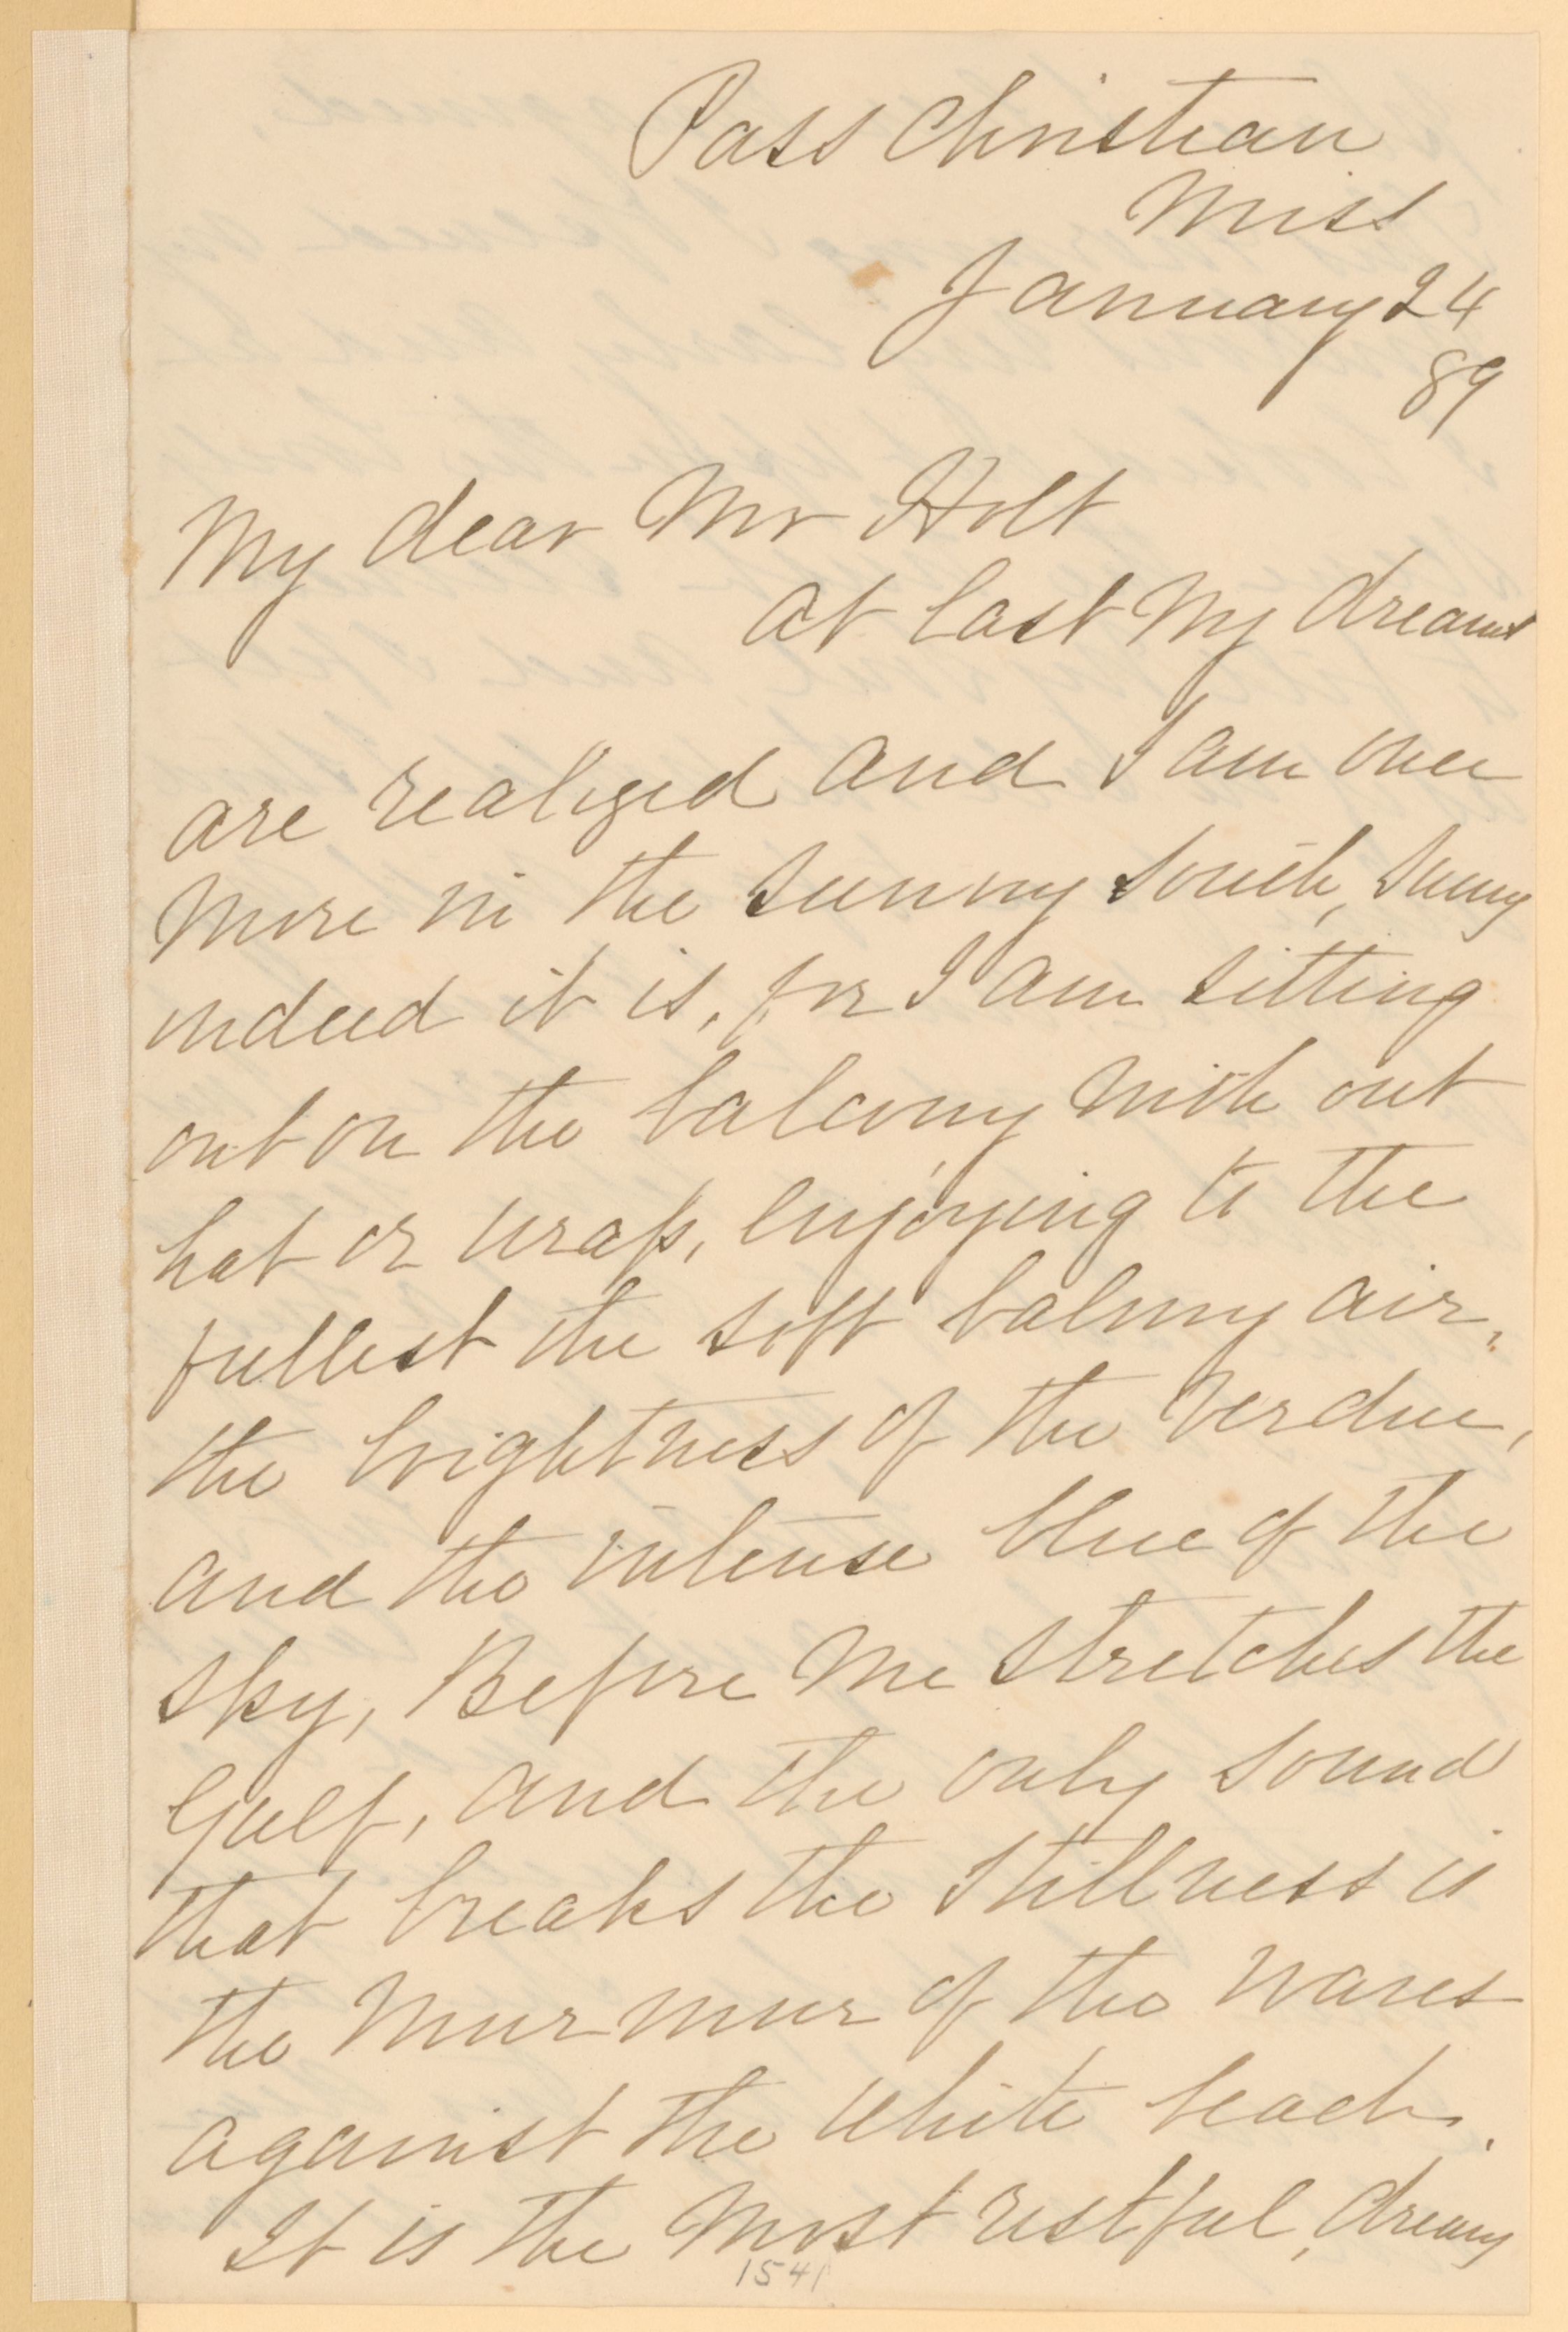 Pass Christian
Miss
January 24
89
My dear Mr Holt
at last my dreams
are realized and I am once
more in the sunny south, sunny
indeed it is, for I am sitting
out on the balcony with out
hat or wrap, enjoying to the
fullest the soft balmy air,
the brightness of the verdure,
and the intense blue of the
sky, Before me stretches the
Gulf, and the only sound
that breaks the stillness is
the murmur of the waves
against the white beach.
It is the most restful, dreamy
1541